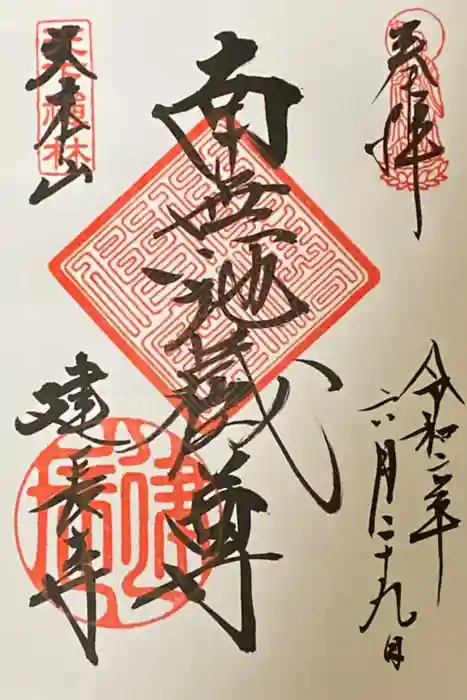 奉拝
南無地蔵尊
大本山
建長寺
令和二年
六月二十九日
天下禅林